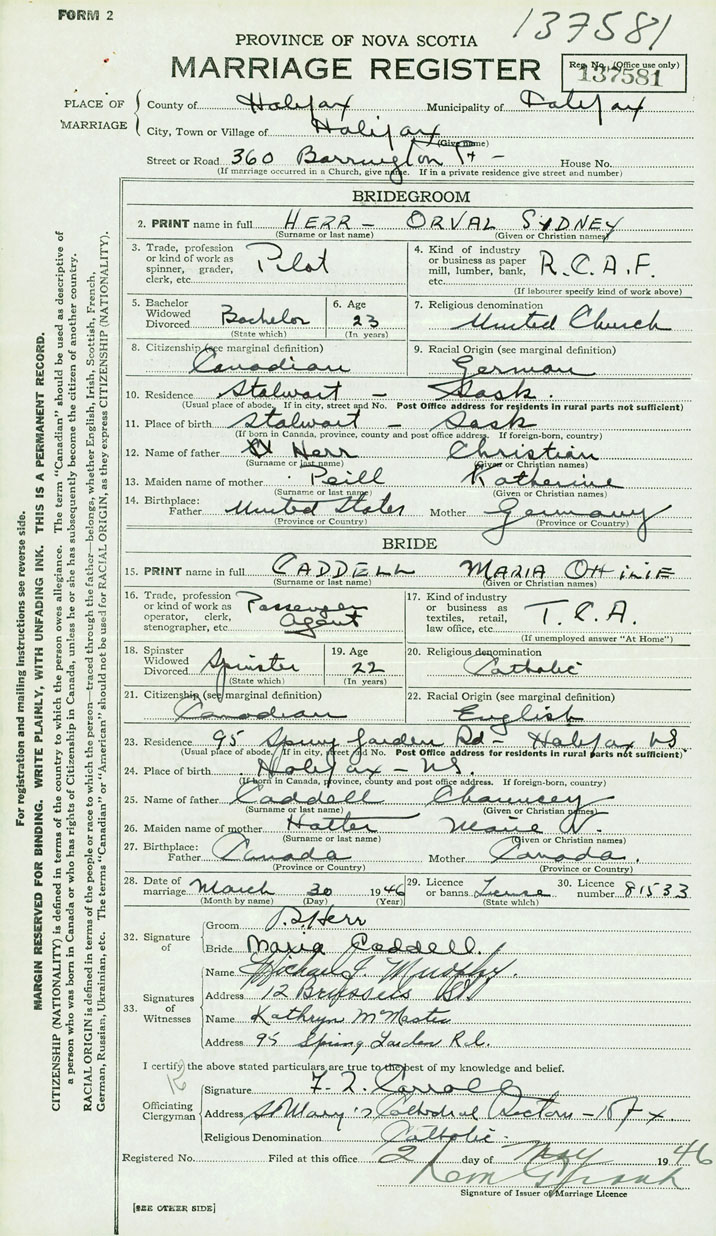 FORM 2
137581
PROVINCE OF NOVA SCOTIA
MARRIAGE REGISTER
Reg. No. (Office use only)
137581
PLACE OF MARRIAGE
County of Halifax Municipality of Halifax
City, Town or Village of Halifax
(Give name)
Street or Road 360 Barrington St - House No.
(If marriage occurred in a Church, give name. If in a private residence give street and number)
BRIDEGROOM
2. PRINT name in full HERR - ORVAL SYDNEY
(Surname or last name) (Given or Christian names)
3. Trade, profession or kind of work as spinner, grader, clerk, etc. Pilot
4. Kind of industry or business as paper mill, lumber, bank, etc. R.C.A.F.
(If labourer specify kind of work above)
5. Bachelor Widowed Divorced Bachelor
(State which)
6. Age 23
(In years)
7. Religious denomination United Church
8. Citizenship (see marginal definition) Canadian
9. Racial Origin (see marginal definition) German
10. Residence Stalwart - Sask.
(Usual place of abode. If in city, street and No. Post Office address for residents in rural parts not sufficient)
11. Place of birth Stalwart - Sask
(If born in Canada, province, county and post office address. If foreign-born, country)
12. Name of father Herr Christian
(Surname or last name) (Given or Christian names)
13. Maiden name of mother Reill Katherine
(Surname or last name) (Given or Christian names)
14. Birthplace: Father United States Mother Germany
(Province or Country) (Province or Country)
BRIDE
15. PRINT name in full CADDELL MARIA OTTILIE
(Surname or last name) (Given or Christian names)
16. Trade, profession or kind of work as operator, clerk, stenographer, etc. Passenger Agent
17. Kind of industry or business as textiles, retail, law office, etc. T.C.A.
(If unemployed answer "At Home")
18. Spinster Widowed Divorced Spinster
(State which)
19. Age 22
(In years)
20. Religious denomination Catholic
21. Citizenship (see marginal definition) Canadian
22. Racial Origin (see marginal definition) English
23. Residence 95 Spring Garden Rd - Halifax NS.
(Usual place of abode. If in city, street and No. Post Office address for residents in rural parts not sufficient)
24. Place of birth Halifax - NS.
(If born in Canada, province, county and post office address. If foreign-born, country)
25. Name of father Caddell Chauncey
(Surname or last name) (Given or Christian names)
26. Maiden name of mother Hatter Marie
(Surname or last name) (Given or Christian names)
27. Birthplace: Father Canada Mother Canada.
(Province or Country) (Province or Country)
28. Date of marriage March 30 1946
(Month by name) (Day) (Year)
29. Licence or banns License
(State which)
30. Licence number 81533
32. Signature of
Groom Herr
Bride Maria Caddell.
33. Signatures of Witnesses
Name Michael J. Murphy.
Address 12 Brussels St
Name Kathryn McMaster
Address 95 Spring Garden Rd.
I certify the above stated particulars are true to the best of my knowledge and belief.
Officiating Clergyman
Signature Carroll
Address St Mary's Cathedral Rectory - Hfx.
Religious Denomination Catholic.
Registered No. Filed at this office 2 day of May 1946
Signature of Issuer of Marriage Licence
[SEE OTHER SIDE]
For registration and mailing instructions see reverse side.
MARGIN RESERVED FOR BINDING. WRITE PLAINLY, WITH UNFADING INK. THIS IS A PERMANENT RECORD.
CITIZENSHIP (NATIONALITY) is defined in terms of the country to which the person owes allegiance. The term "Canadian" should be used as descriptive of
a person who was born in Canada or who has rights of Citizenship in Canada, unless he or she has subsequently become the citizen of another country.
RACIAL ORIGIN is defined in terms of the people or race to which the person—traced through the father—belongs, whether English, Irish, Scottish, French,
German, Russian, Ukrainian, etc. The terms "Canadian" or "American" should not be used for RACIAL ORIGIN, as they express CITIZENSHIP (NATIONALITY).